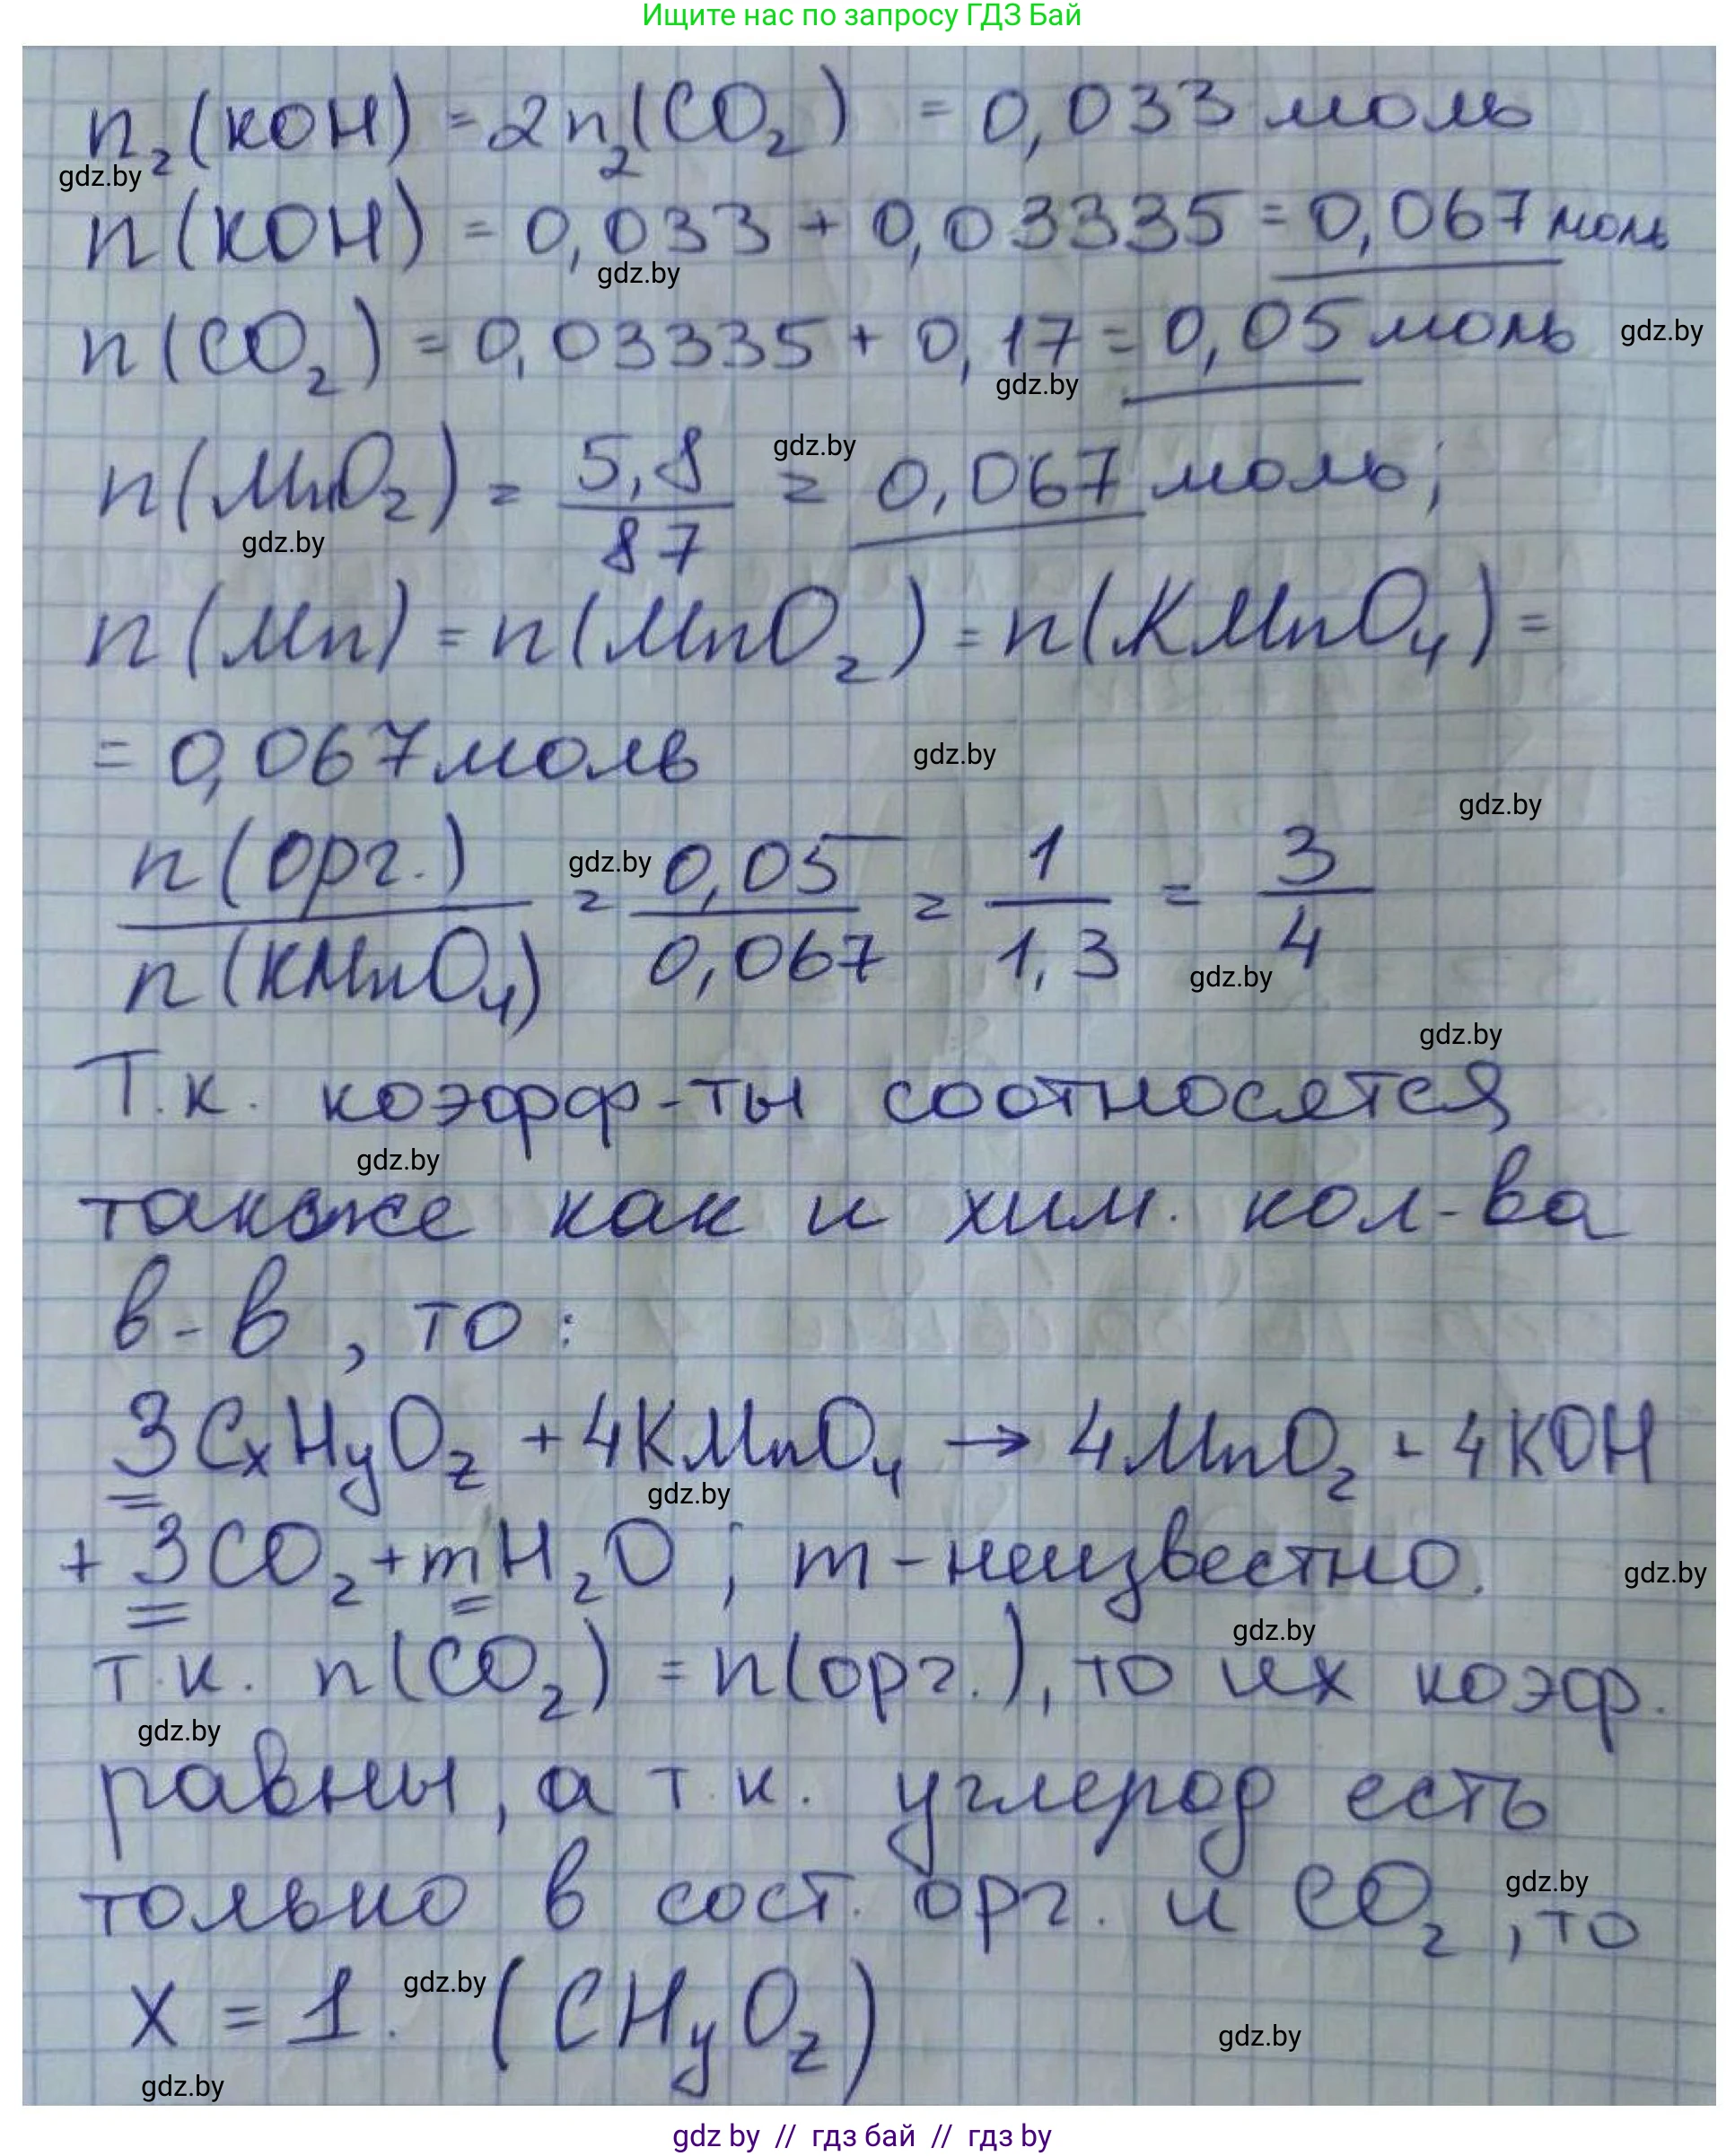 Ищите нас по запросу ГДЗ Бай
n₂(KOH) = 2n₂(CO₂) = 0,033 моль
gdz.by
n(KOH) = 0,033 + 0,03335 = 0,067 моль
gdz.by
n(CO₂) = 0,03335 + 0,17 = 0,05 моль gdz.by
gdz.by
n(MnO₂) = 5,8/87 = 0,067 моль;
gdz.by
gdz.by
n(Mn) = n(MnO₂) = n(KMnO₄) =
= 0,067 моль gdz.by
gdz.by
n(орг.)/n(KMnO₄) = 0,05/0,067 = 1/1,3 = 3/4
gdz.by
gdz.by
gdz.by
Т.к. коэфф-ты соотносятся
gdz.by
также как и хим. кол-ва
в-в, то:
3CₓHᵧO_z + 4KMnO₄ → 4MnO₂ + 4KOH
gdz.by
+ 3CO₂ + mH₂O ; m - неизвестно. gdz.by
gdz.by
т.к. n(CO₂) = n(орг.), то их коэф.
gdz.by
равны, а т.к. углерод есть
gdz.by
только в сост. орг. и CO₂, то
x = 1. gdz.by (CHᵧO_z)
gdz.by
gdz.by
gdz by // гдз бай // гдз by